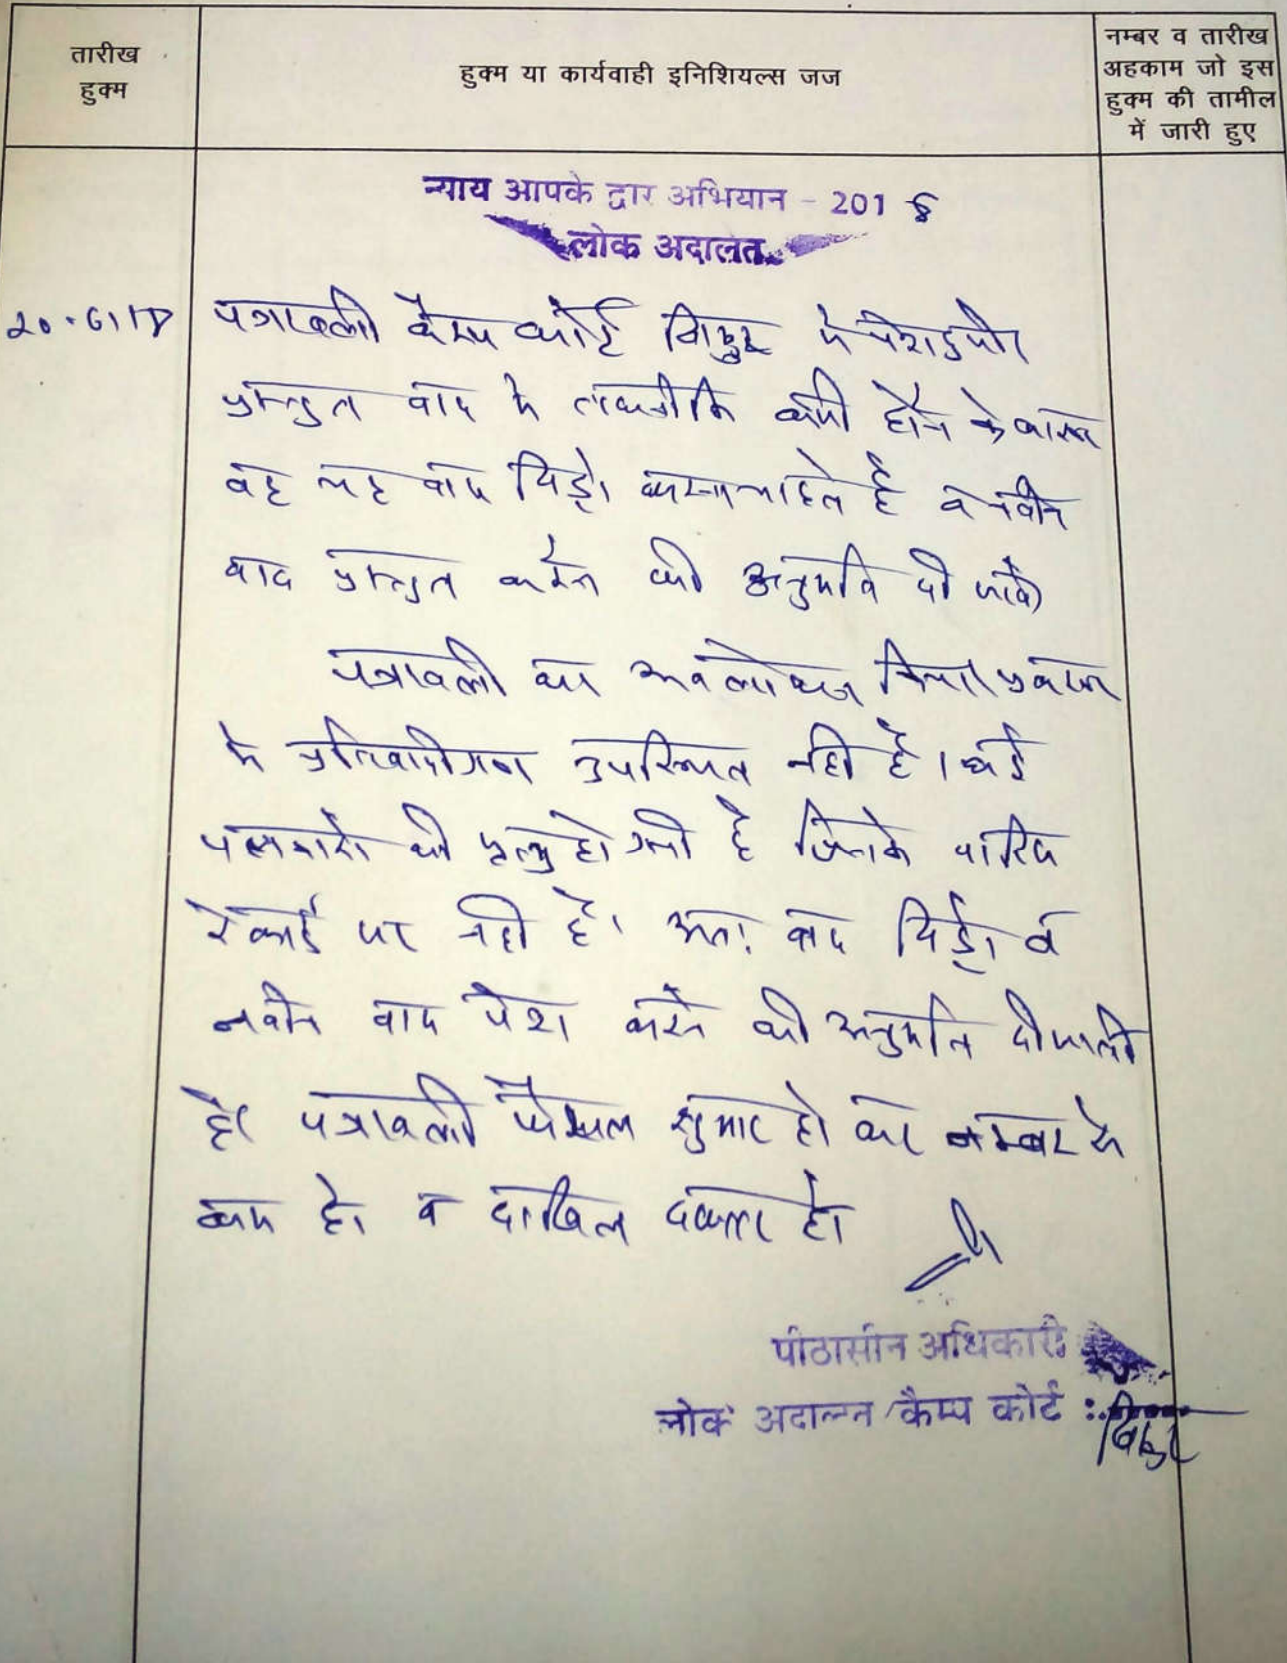 तारीख
हुक्म
हुक्म या कार्यवाही इनिशियल्स जज
नम्बर व तारीख
अहकाम जो इस
हुक्म की तामील
में जारी हुए
न्याय आपके द्वार अभियान - 2018
लोक अदालत
20.6.18
पत्रावली कैम्प कोर्ट में पेश हुयी।
प्रस्तुत वाद में तकनीकि कमी होने के कारण
वह यह वाद विड्रो करना चाहते है व नवीन
वाद प्रस्तुत करने की अनुमति दी जावे।
पत्रावली का अवलोकन किया। प्रकरण
में प्रतिवादीगण उपस्थित नही है। कई
पक्षकारो की मृत्यु हो गयी है जिनके वारिस
रेकार्ड पर नही है। अतः वाद विड्रो व
नवीन वाद पेश करने की अनुमति दी जाती
है। पत्रावली फैसल शुमार हो कर नम्बर से
कम हो। व दाखिल दफ्तर हो।
पीठासीन अधिकारी
लोक अदालत/कैम्प कोर्ट :